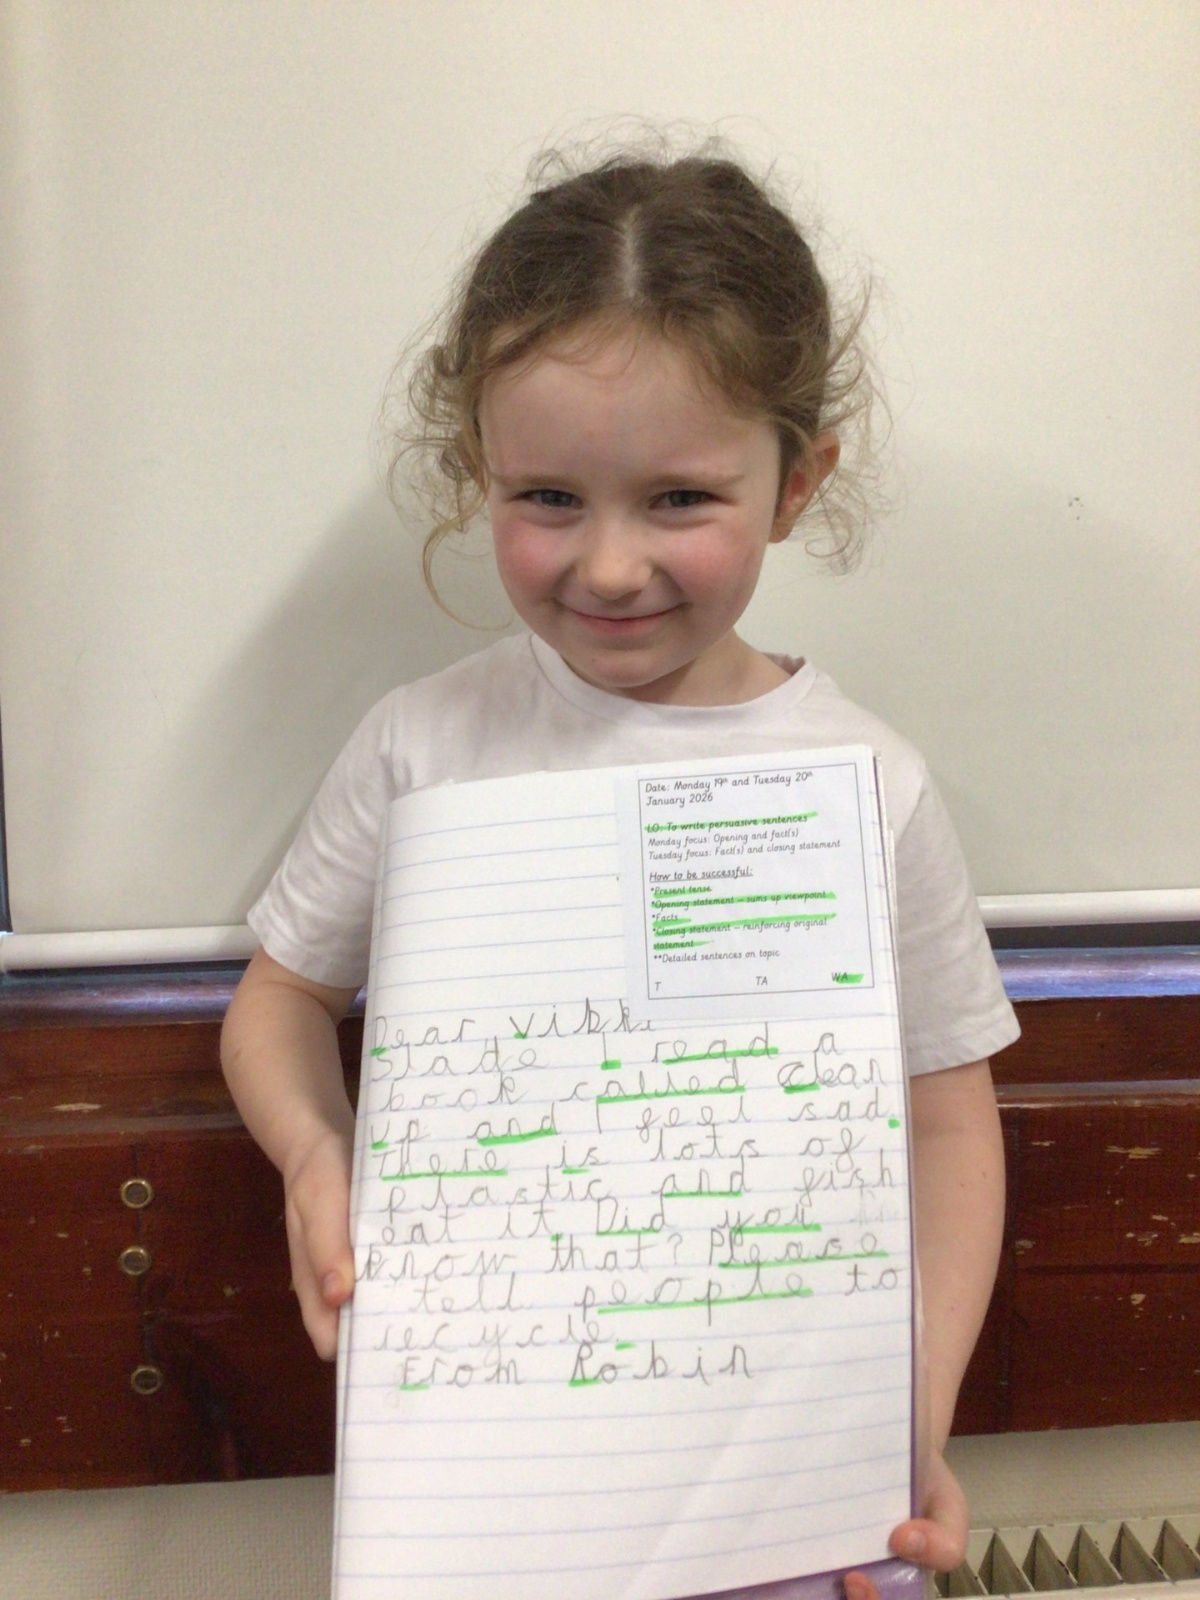 Date: Monday 19th and Tuesday 20th
January 2026
LO: To write persuasive sentences
Monday focus: Opening and fact(s)
Tuesday focus: Fact(s) and closing statement
How to be successful:
*Present tense
*Opening statement – sums up viewpoint
*Facts
*Closing statement – reinforcing original
statement
**Detailed sentences on topic
T TA WA
Dear Vikki
Slade I read a
book called Clean
Up and I feel sad.
There is lots of
plastic and fish
eat it. Did you
know that? Please
tell people to
recycle.
From Robin